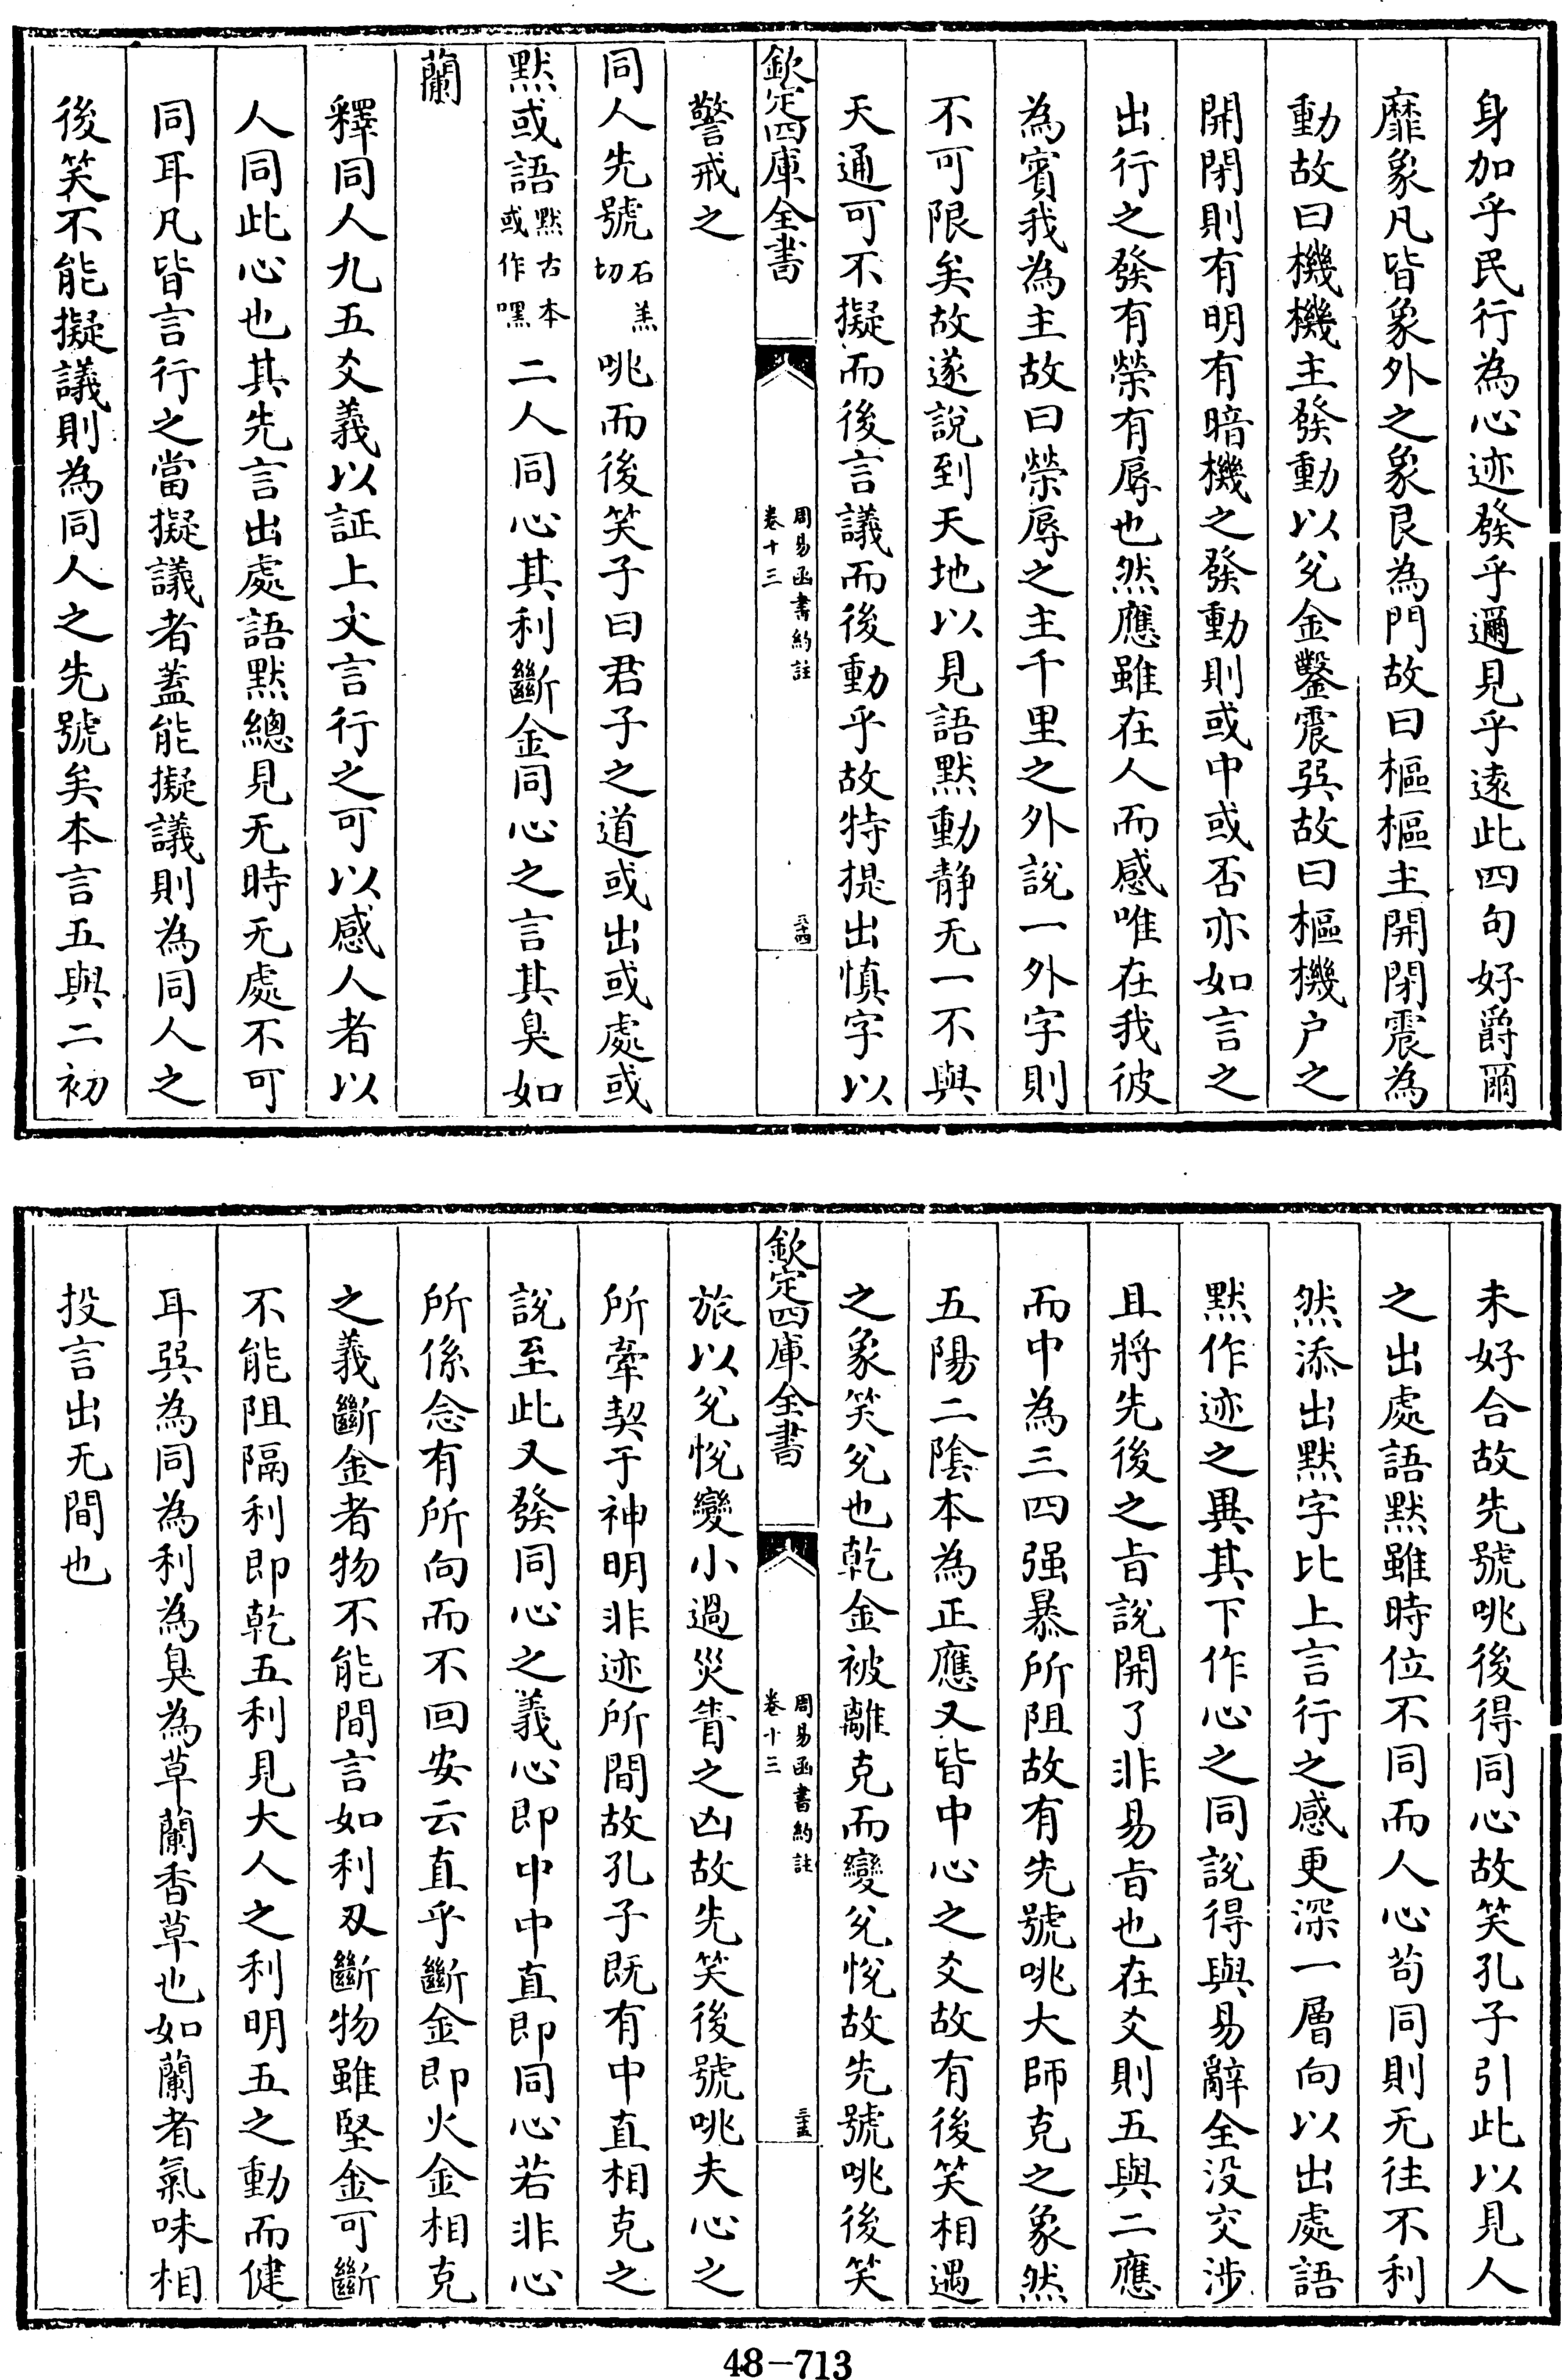 身加乎民行為心迹發乎邇見乎遠此四句好爵爾
靡象凡皆象外之象艮為門故曰樞樞主開閉震為
動故曰機機主發動以兌金鑿震巽故曰樞機户之
開閉則有明有暗機之發動則或中或否亦如言之
出行之發有榮有辱也然應雖在人而感唯在我彼
為賓我為主故曰榮辱之主千里之外說一外字則
不可限矣故遂說到天地以見語默動静无一不與
天通可不擬而後言議而後動乎故特提出慎字以
欽定四庫全書 周易函書約註 卷十三 三十四
警戒之
同人先號石羔切咷而後笑子曰君子之道或出或處或
默或語默古本或作嘿二人同心其利斷金同心之言其臭如
蘭
釋同人九五爻義以証上文言行之可以感人者以
人同此心也其先言出處語默總見无時无處不可
同耳凡皆言行之當擬議者蓋能擬議則為同人之
後笑不能擬議則為同人之先號矣本言五與二初
未好合故先號咷後得同心故笑孔子引此以見人
之出處語默雖時位不同而人心苟同則无往不利
然添出默字比上言行之感更深一層向以出處語
默作迹之異其下作心之同說得與易辭全没交涉
且將先後之㫖說開了非易㫖也在爻則五與二應
而中為三四强暴所阻故有先號咷大師克之象然
五陽二陰本為正應又皆中心之爻故有後笑相遇
之象笑兌也乾金被離克而變兌悅故先號咷後笑
欽定四庫全書 周易函書約註 卷十三 三十五
旅以兌悅變小過災眚之凶故先笑後號咷夫心之
所牽契于神明非迹所間故孔子既有中直相克之
說至此又發同心之義心即中中直即同心若非心
所係念有所向而不回安云直乎斷金即火金相克
之義斷金者物不能間言如利刄斷物雖堅金可斷
不能阻隔利即乾五利見大人之利明五之動而健
耳巽為同為利為臭為草蘭香草也如蘭者氣味相
投言出无間也
48-713